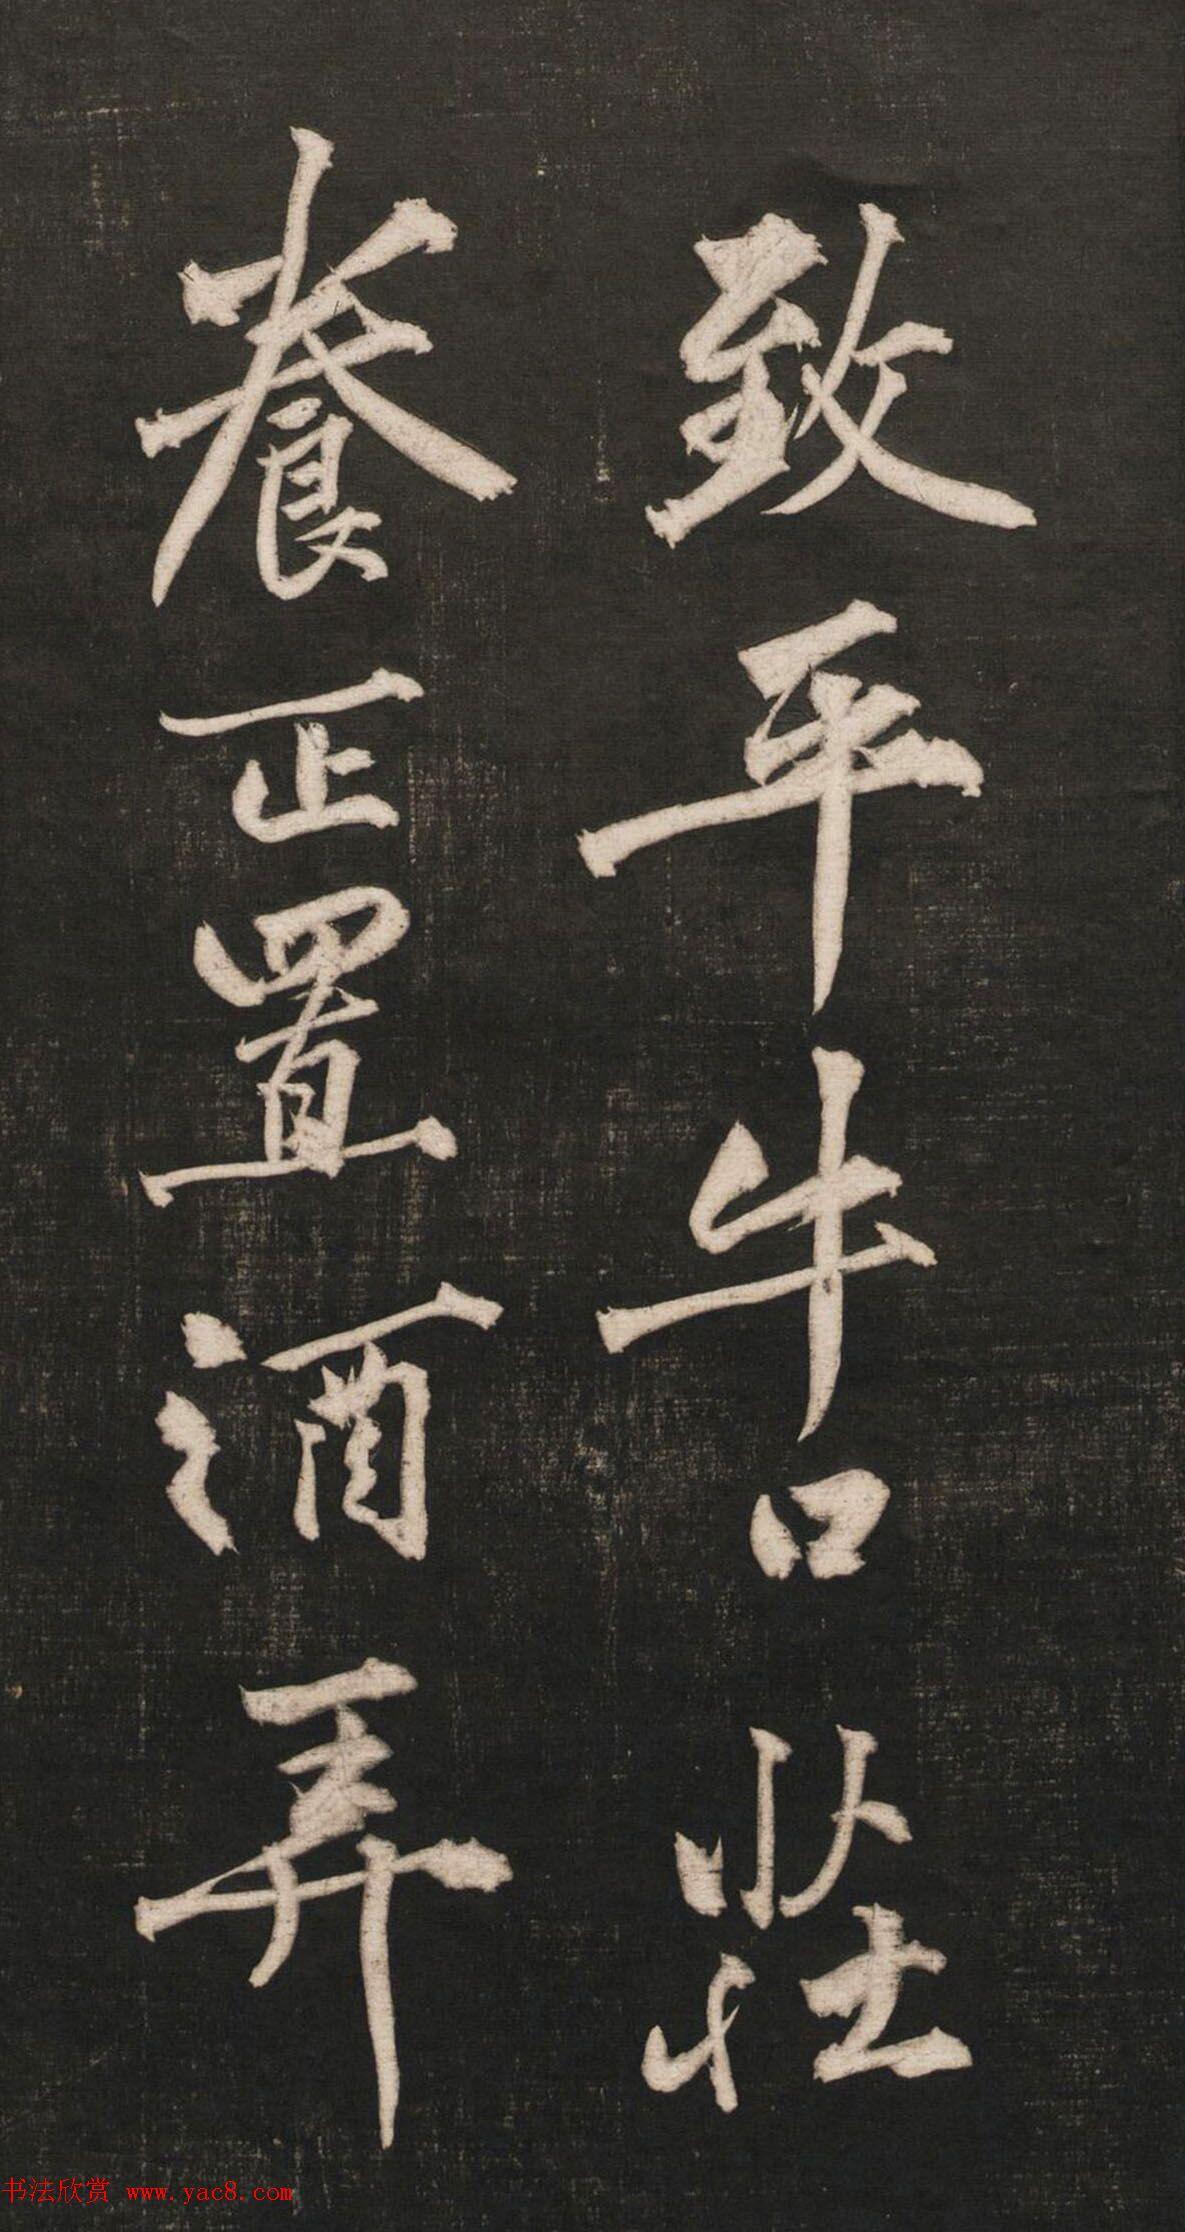 致平牛口莊
養正置酒弄
书法欣赏 www.yac8.com